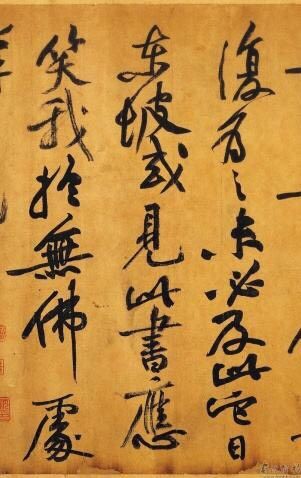 復為之未必及此它日
東坡或見此書應
笑我於無佛處